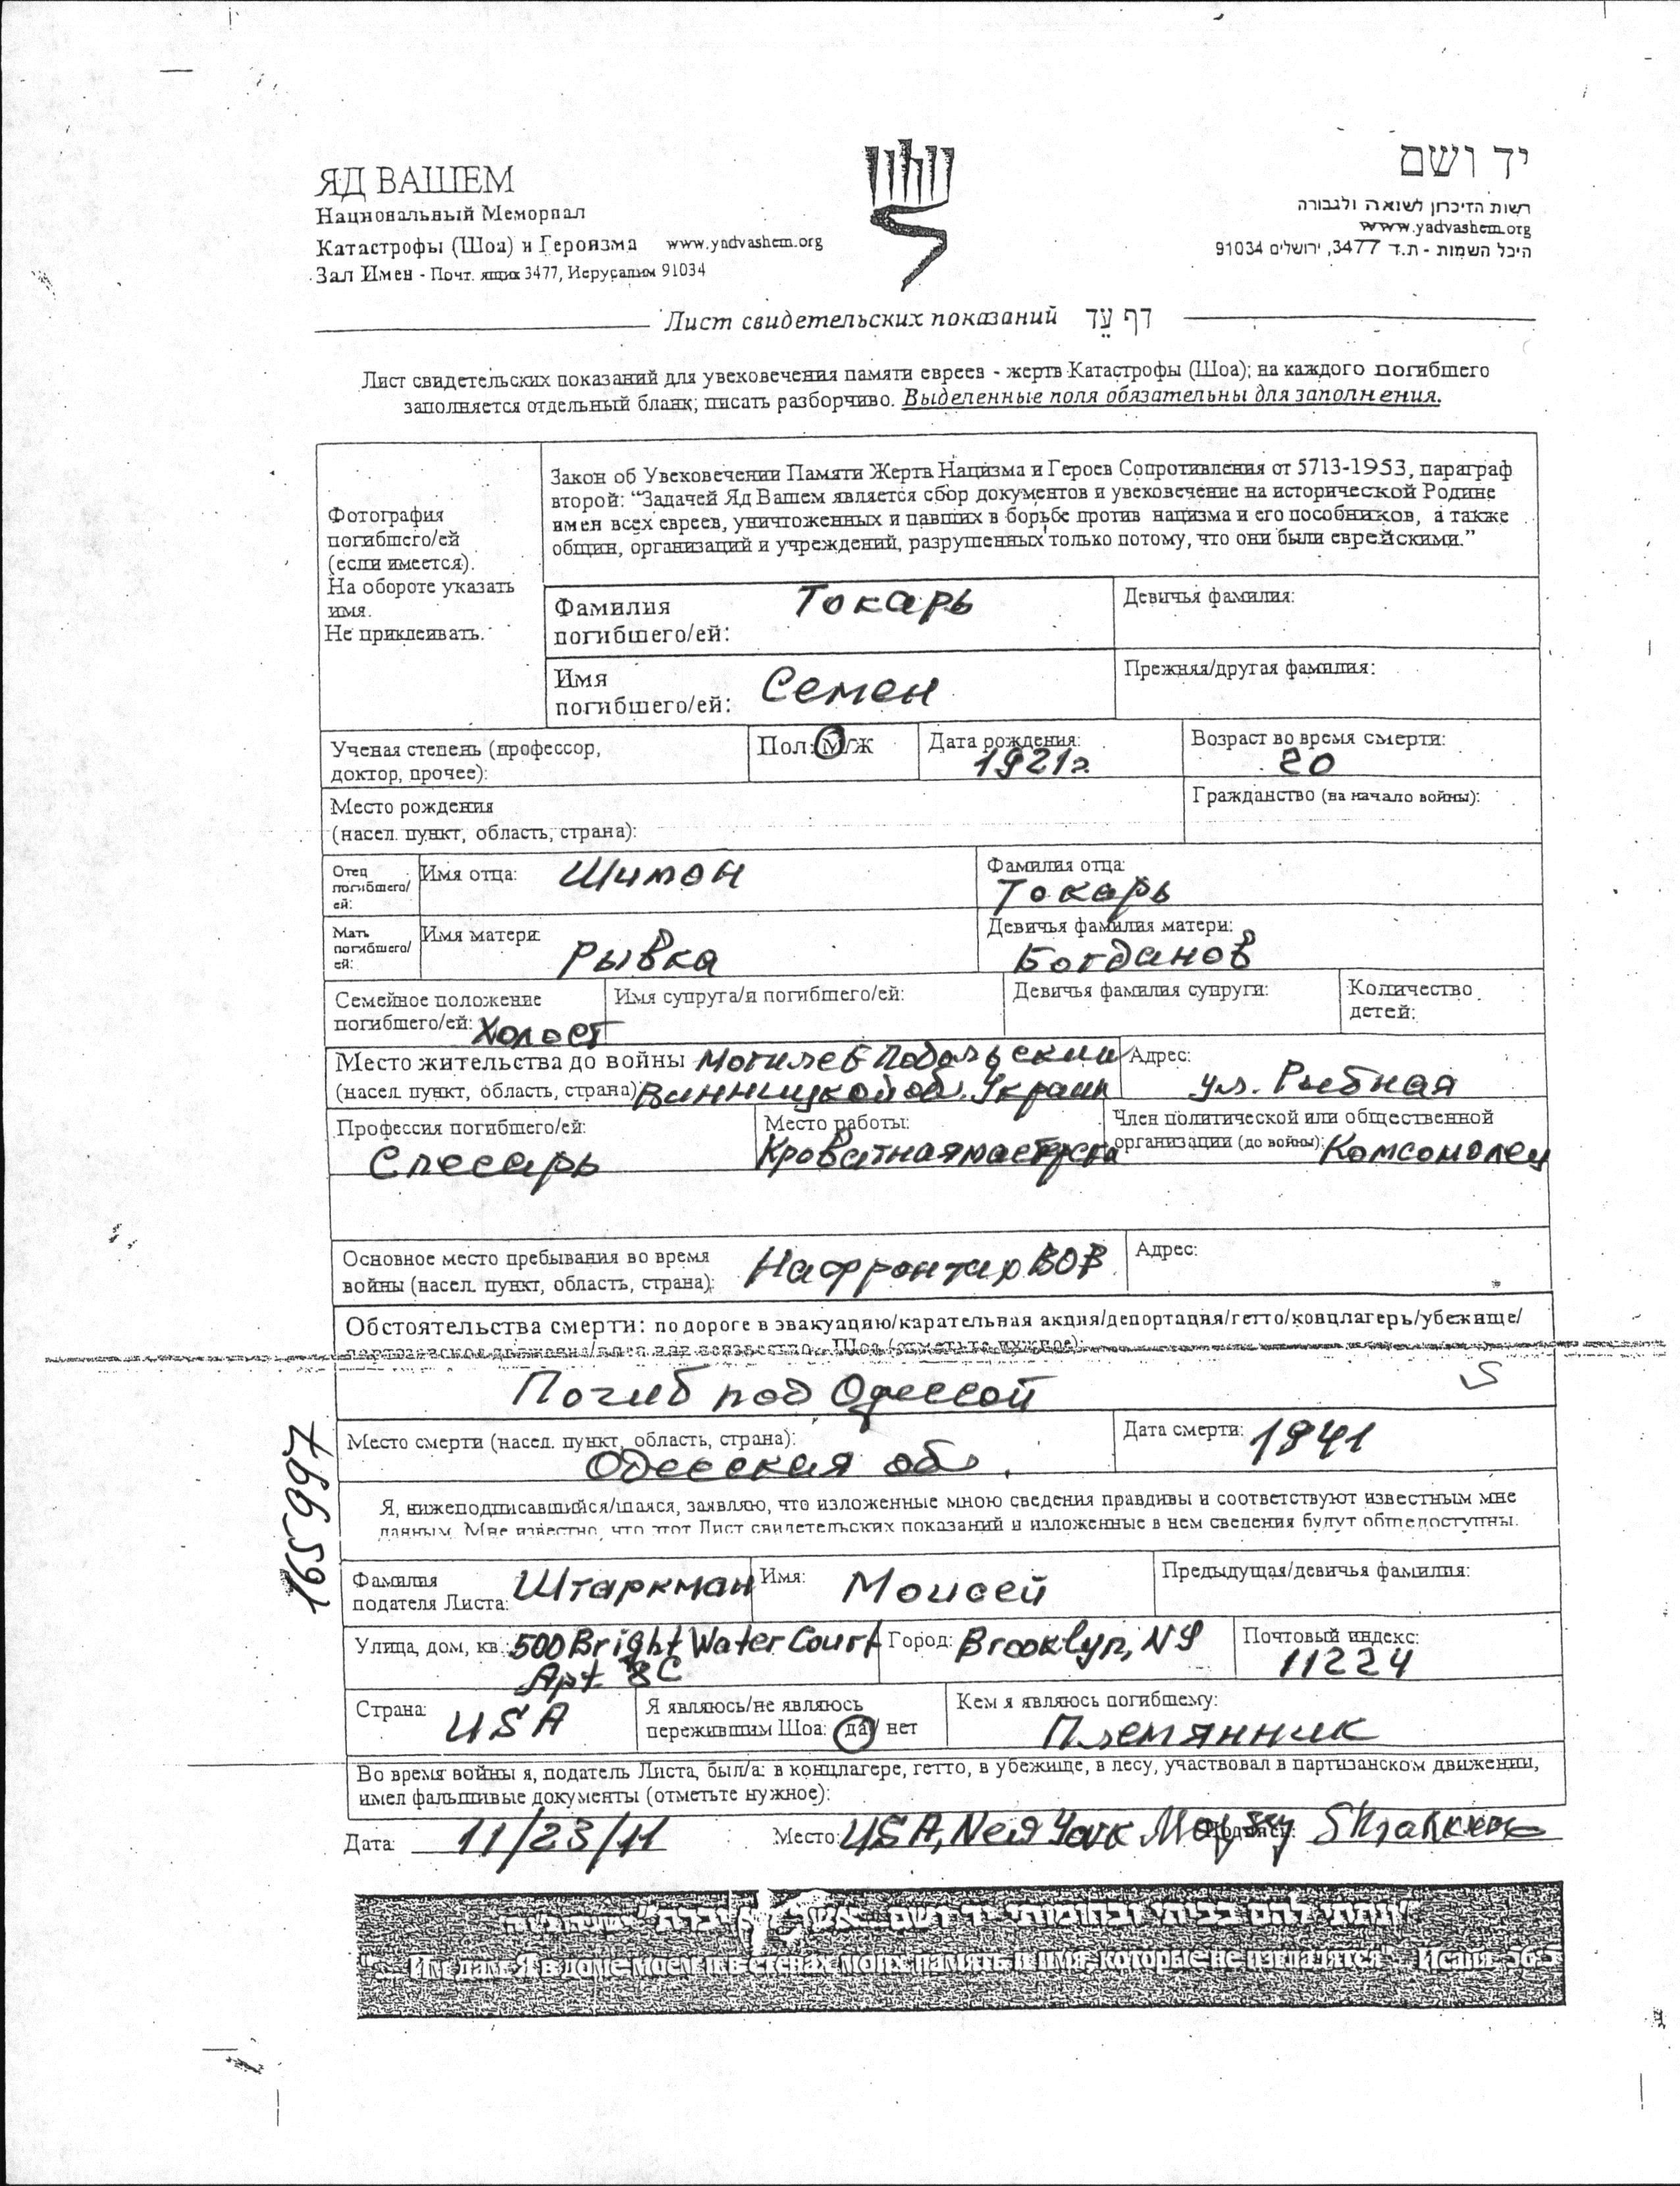 ЯД ВАШЕМ
Национальный Мемориал
Катастрофы (Шоа) и Героизма www.yadvashem.org
Зал Имен - Почт. ящик 3477, Иерусалим 91034
יד ושם
רשות הזיכרון לשואה ולגבורה
www.yadvashem.org
היכל השמות - ת.ד 3477, ירושלים 91034
Лист свидетельских показаний דף עד
Лист свидетельских показаний для увековечения памяти евреев - жертв Катастрофы (Шоа); на каждого погибшего
заполняется отдельный бланк; писать разборчиво. Выделенные поля обязательны для заполнения.
Фотография
погибшего/ей
(если имеется).
На обороте указать
имя.
Не приклеивать.
Закон об Увековечении Памяти Жертв Нацизма и Героев Сопротивления от 5713-1953, параграф
второй: “Задачей Яд Вашем является сбор документов и увековечение на исторической Родине
имен всех евреев, уничтоженных и павших в борьбе против нацизма и его пособников, а также
общин, организаций и учреждений, разрушенных только потому, что они были еврейскими.”
Фамилия
погибшего/ей: Токарь
Девичья фамилия:
Имя
погибшего/ей: Семен
Прежняя/другая фамилия:
Ученая степень (профессор,
доктор, прочее):
Пол: М/Ж
Дата рождения:
1921г
Возраст во время смерти:
20
Место рождения
(насел. пункт, область, страна):
Гражданство (на начало войны):
Отец
погибшего/
ей:
Имя отца: Шимон
Фамилия отца:
Токарь
Мать
погибшего/
ей:
Имя матери:
Рывка
Девичья фамилия матери:
Богданов
Семейное положение
погибшего/ей: Холост
Имя супруга/и погибшего/ей:
Девичья фамилия супруги:
Количество
детей:
Место жительства до войны Могилев Подольский
(насел. пункт, область, страна): Винницкой об. Украин
Адрес:
ул. Рыбная
Профессия погибшего/ей:
Слесарь
Место работы:
Кроватная
Член политической или общественной
организации (до войны): Комсомолец
Основное место пребывания во время
войны (насел. пункт, область, страна): На фронтах ВОВ
Адрес:
Обстоятельства смерти: по дороге в эвакуацию/карательная акция/депортация/гетто/концлагерь/убежище/
Шоа (отметьте нужное):
Погиб под Одессой
Место смерти (насел. пункт, область, страна):
Одесская об.
Дата смерти: 1941
165997
Я, нижеподписавшийся/шаяся, заявляю, что изложенные мною сведения правдивы и соответствуют известным мне
данным. Мне известно, что этот Лист свидетельских показаний и изложенные в нем сведения будут общедоступны.
Фамилия
подателя Листа: Штаркман
Имя: Моисей
Предыдущая/девичья фамилия:
Улица, дом, кв.: 500 Bright Water Court
Apt 8C
Город: Brooklyn, NY
Почтовый индекс:
11224
Страна: USA
Я являюсь/не являюсь
пережившим Шоа: да/ нет
Кем я являюсь погибшему:
Племянник
Во время войны я, податель Листа, был/а: в концлагере, гетто, в убежище, в лесу, участвовал в партизанском движении,
имел фальшивые документы (отметьте нужное):
Дата: 11/23/11 Место: USA, New York Подпись:
"ונתתי להם בביתי ובחומותי יד ושם... אשר לא יכרת"
"... Им дам Я в доме моем и в стенах моих память и имя, которые не изгладятся". Исаия 56:5